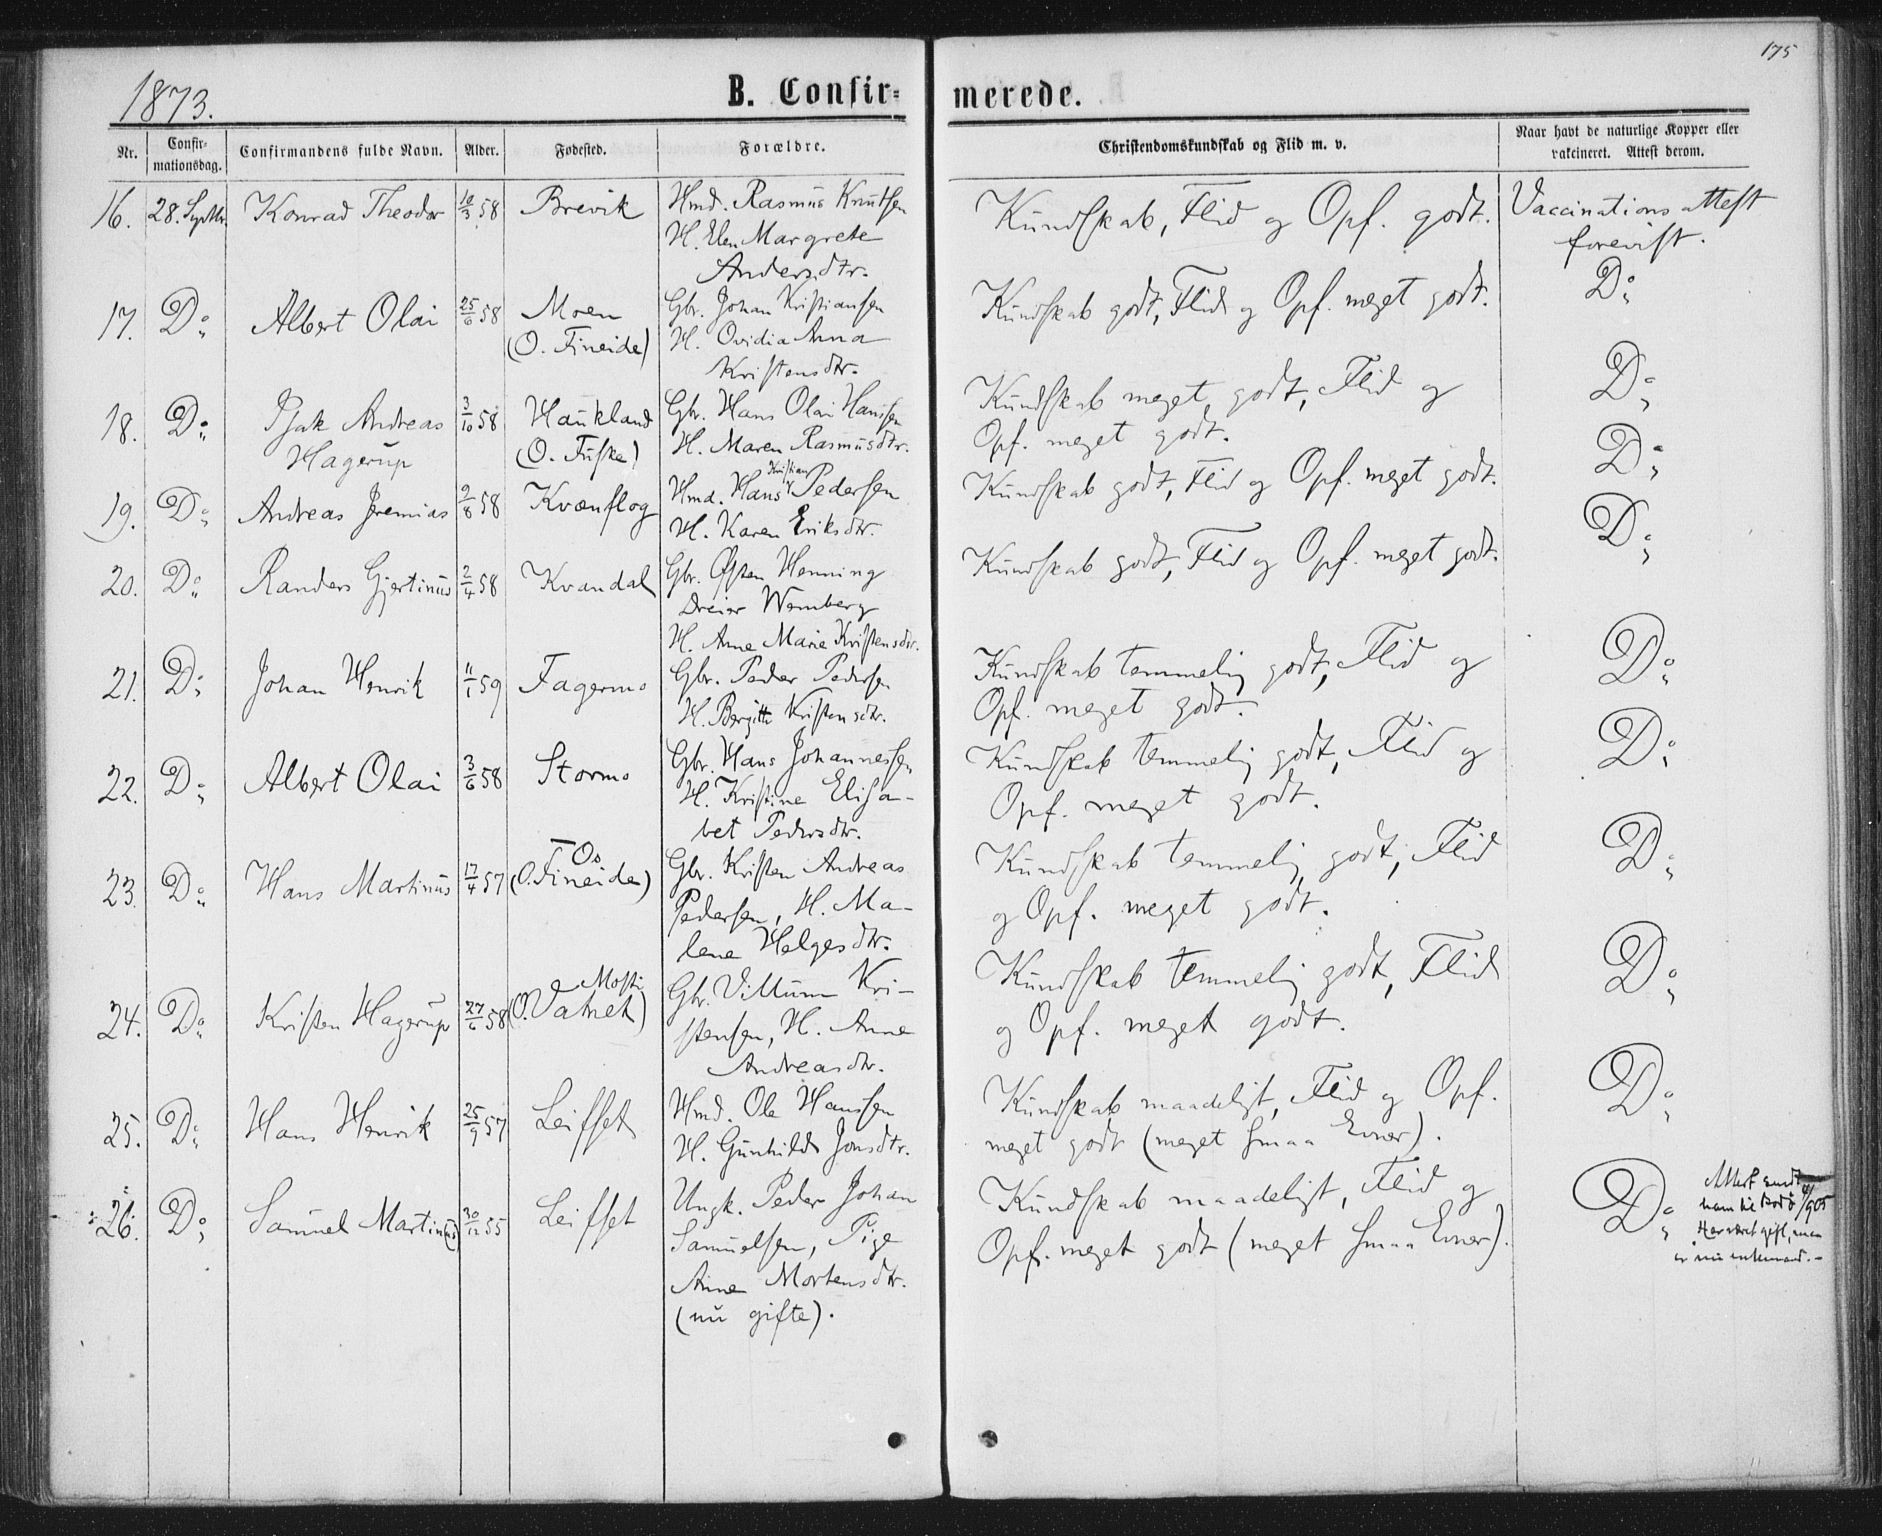 175
1873.
B. Confir-
merede.
Nr.
Confir-
mationsdag.
Confirmandens fulde Navn.
Alder.
Fødested.
Forældre.
Christendomskundskab og Flid m. v.
Naar havt de naturlige Kopper eller
vakcineret. Attest derom.
16. 28. Septbr. Konrad Theodor 10/3 58 Brevik Hmd. Rasmus Knutsen
H. Elen Margrete
Andersdtr.
Kundskab, Flid og Opf. godt. Vaccinationsattest
forevist.
17. Do Albert Olai 25/6 58 Moen Gbr. Johan Kristiansen
(O. Fineide) H. Ovidia Anna
Kristensdtr.
Kundskab godt, Flid og Opf. meget godt. Do
18. Do Isak Andreas 3/10 58 Haukland Gbr. Hans Olai Hansen
Hagerup (O. Fuske) H. Maren Rasmusdtr.
Kundskab meget godt, Flid og Do
Opf. meget godt.
19. Do Andreas Jeremias 9/8 58 Kvænflog Hmd. Hans Kristian Pedersen
H. Karen Eriksdtr.
Kundskab godt, Flid og Opf. meget godt. Do
20. Do Randers Gjertinus 2/4 58 Kvandal Gbr. Østen Henning
Dreier Wemberg
H. Anne Marie Kristensdtr.
Kundskab godt, Flid og Opf. meget godt. Do
21. Do Johan Henrik 11/1 59 Fagermo Gbr. Peder Pedersen
H. Bergitte Kristensdtr.
Kundskab temmelig godt, Flid og Do
Opf. meget godt.
22. Do Albert Olai 3/6 58 Stormo Gbr. Hans Johannessen
H. Kristine Elisa-
bet Pedersdtr.
Kundskab temmelig godt, Flid og Do
Opf. meget godt.
Os
23. Do Hans Martinus 17/4 57 (O. Fineide) Gbr. Kristen Andreas
Pedersen, H. Ma-
lene Helgesdtr.
Kundskab temmelig godt, Flid Do
og Opf. meget godt.
24. Do Kristen Hagerup 27/6 58 (O. Vatnet) Gbr. Villum Kri-
stensen, H. Anne
Andreasdtr.
Kundskab temmelig godt, Flid Do
og Opf. meget godt.
25. Do Hans Henrik 25/9 57 Leifset Hmd. Ole Hansen
H. Gunhild Jonsdtr.
Kundskab maadeligt, Flid og Opf. Do
meget godt (meget smaa Evner).
26. Do Samuel Martinus 30/12 55 Leifset Ungk. Peder Johan
Samuelsen, Pige
Anne Mortensdtr.
(nu gifte).
Kundskab maadeligt, Flid og Do
Opf. meget godt (meget smaa Evner).
Attest sendt
ham til Bodø /905
Har været gift, men
er nu enkemand. -